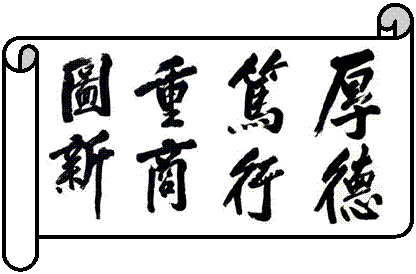 厚德
篤行
重商
圖新